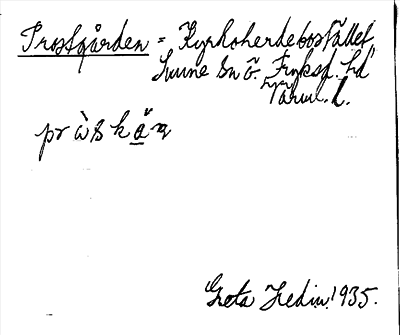 Prostgården = Kyrkoherdebostället,
Sunne sn Ö. Fryksd. hd
Värml. l.
pr ò s k å̤ n
Greta Hedin 1935.